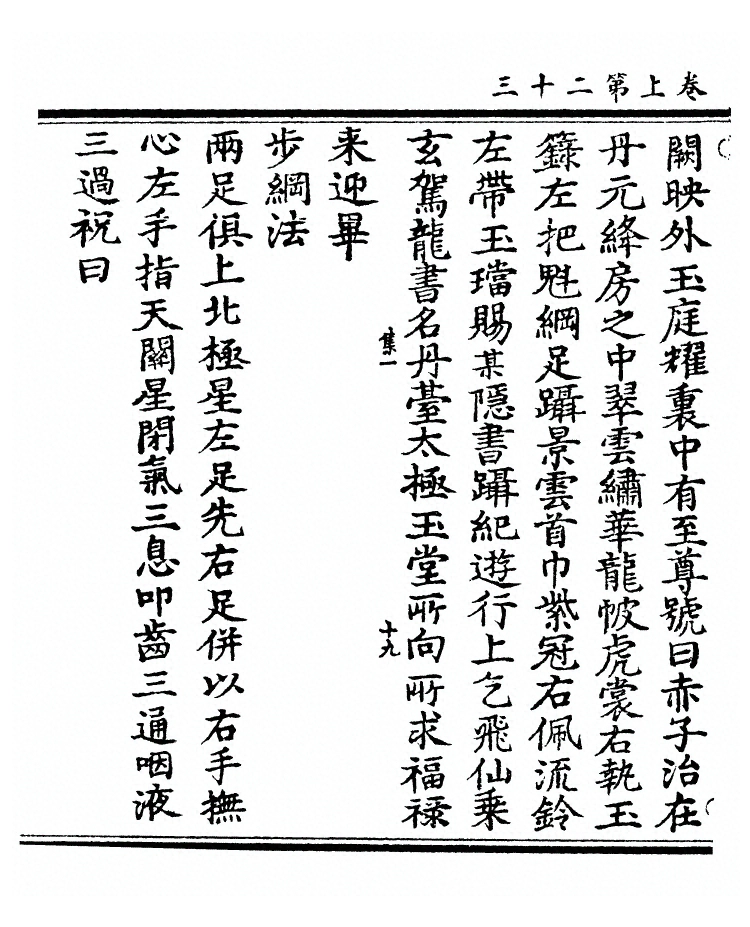 卷上第二十三
闕映外玉庭耀裏中有至尊號曰赤子治在
丹元絳房之中翠雲繡華龍帔虎裳右執玉
籙左把魁綱足躡景雲首巾紫冠右佩流鈴
左帶玉璫賜某隱書躡紀遊行上乞飛仙乗
玄駕龍書名丹臺太極玉堂所向所求福祿
集一
十九
来迎畢
步綱法
兩足俱上北極星左足先右足併以右手撫
心左手指天關星閉氣三息叩齒三通咽液
三過祝曰